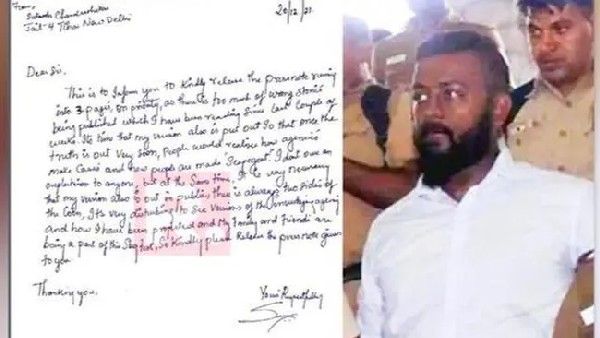 From,
Jail-4 Tihar New Delhi
20/12/21
Dear Sir,
This is to Inform you to Kindly release the pressnote
into 3 pages, on priority, as there is too much of wrong stories
being published which I have been reading since last couple of
weeks. Its time that my version also is put out so that once the
truth is out very soon, people would realise how agencies
make cases and how people are made Scapegoat. I dont owe an
explination to anyone, but at the same time, it is very necessary
that my version also is out in public, there is always two sides of
the coin, Its very disturbing to see version of the investigating agency
and how I have been and my family and friends are
being a part of this So kindly please release the pressnote given
to you
Thanking you,
Yours Respectfully